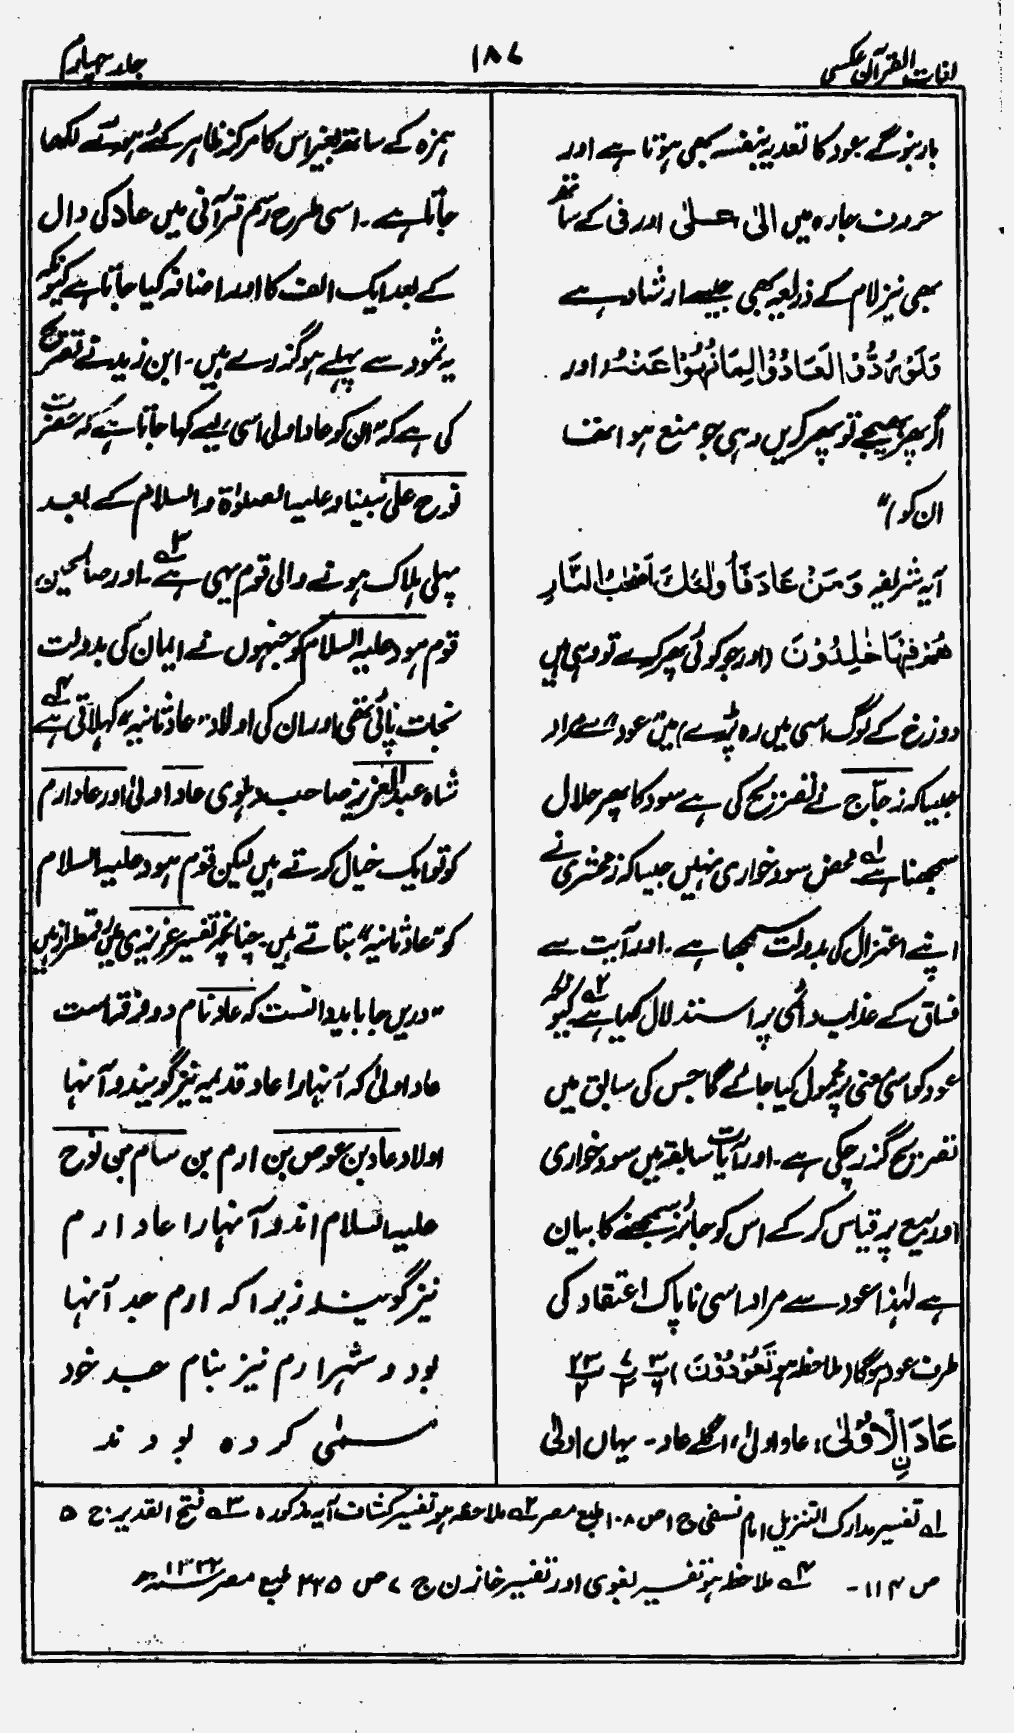 لغات القرآن عکسی
۱۸۷
جلد چہارم
بار بنو گے عود کا تعدیہ بنفسہ بھی ہوتا ہے اور
حروف جارہ میں الیٰ، علیٰ اور فی کے ساتھ
بھی نیز لام کے ذریعہ بھی جیسے ارشاد ہے
وَلَوْ رُدُّوْا لَعَادُوْا لِمَا نُهُوْا عَنْهُ (اور
اگر پھر بھیجے تو پھر کریں وہی جو منع ہوا تھا
ان کو)"
آیہ شریفہ وَمَنْ عَادَ فَاُولٰٓئِكَ اَصْحٰبُ النَّارِ
هُمْ فِيْهَا خٰلِدُوْنَ (اور جو کوئی پھر کرے تو وہی ہیں
دوزخ کے لوگ اسی میں رہ پڑے) میں "عود" سے مراد
جیسا کہ زجاج نے تصریح کی ہے سود کا پھر حلال
سمجھنا ہے ۱ محض سود خواری نہیں جیسا کہ زمخشری نے
اپنے اعتزال کی بدولت سمجھا ہے۔ اور آیت سے
فساق کے عذاب دائمی پر استدلال کیا ہے ۲ کیونکہ
عود کو اسی معنی پر محمول کیا جائے گا جس کی سابق میں
تصریح گزر چکی ہے۔ اور آیات سابقہ میں سود خواری
اور بیع پر قیاس کر کے اس کو جائز سمجھنے کا بیان
ہے لہٰذا عود سے مراد اسی ناپاک اعتقاد کی
طرف عود ہوگا (ملاحظہ ہو تَعُوْدُوْنَ)
عَادَنِ الْاُوْلٰى، عاد اولیٰ، اگلے عاد۔ یہاں اولیٰ
ہمزہ کے ساتھ بغیر اس کا مرکز ظاہر کئے ہوئے لکھا
جاتا ہے۔ اسی طرح رسم قرآنی میں عاد کی دال
کے بعد ایک الف کا اور اضافہ کیا جاتا ہے کیونکہ
یہ ثمود سے پہلے ہو گذرے ہیں۔ ابن زید نے تصریح
کی ہے کہ "ان کو عاد اولی اسی لیے کہا جاتا ہے کہ حضرت
نوح علی نبینا وعلیہ الصلوٰۃ والسلام کے بعد
پہلی ہلاک ہونے والی قوم یہی ہے ۳۔ اور صالحین
قوم ہود علیہ السلام کو جنہوں نے ایمان کی بدولت
نجات پائی تھی اور ان کی اولاد "عاد ثانیہ" کہلاتی ہے ۴
شاہ عبد العزیز صاحب دہلوی عاد اولیٰ اور عاد ارم
کو تو ایک خیال کرتے ہیں لیکن قوم ہود علیہ السلام
کو "عاد ثانیہ" بتاتے ہیں۔ چنانچہ تفسیر عزیزی میں رقمطراز ہیں
"دریں جا باید دانست کہ عاد نام دو فرقہ است
عاد اولیٰ کہ آنہا را عاد قدیمہ نیز گویند و آنہا
اولاد عاد بن عوص بن ارم بن سام بن نوح
علیہ السلام اند و آنہا را عاد ارم
نیز گویند زیرا کہ ارم جد آنہا
بود و شہر ارم نیز بنام جد خود
مسمٰی کردہ بودند
۱ تفسیر مدارک التنزیل امام نسفی ج ۱ ص ۱۰۸ طبع مصر ۲ ملاحظہ ہو تفسیر کشاف آیہ مذکورہ ۳ فتح القدیر ج ۵
ص ۱۱۴۔ ۴ ملاحظہ ہو تفسیر بغوی اور تفسیر خازن ج ۷ ص ۲۲۵ طبع مصر